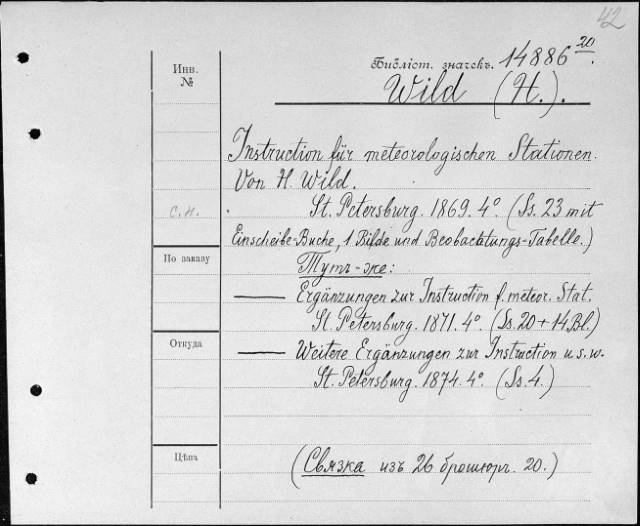 42
Инв.
№
Библіот. значекъ. 14886 20.
Wild (H.).
Instruction für meteorologischen Stationen.
Von H. Wild.
с.н.
St. Petersburg. 1869. 4°. (Ss. 23 mit
Einscheibe-Buche, 1 Bilde und Beobachtungs-Tabelle.)
По заказу
Тутъ-же:
—— Ergänzungen zur Instruction f. meteor. Stat.
St. Petersburg. 1871. 4°. (Ss. 20 + 14 Bl.)
Откуда
—— Weitere Ergänzungen zur Instruction u. s. w.
St. Petersburg. 1874. 4°. (Ss. 4.)
Цѣна
(Связка изъ 26 брошюръ. 20.)